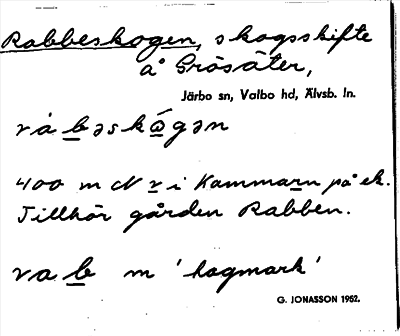 Rabbeskogen, skogsskifte
å Gräsäter,
Järbo sn, Valbo hd, Älvsb. ln.
400 m N v i Kammarn på ek.
Tillhör gården Rabben.
m 'hagmark'
G. JONASSON 1962.